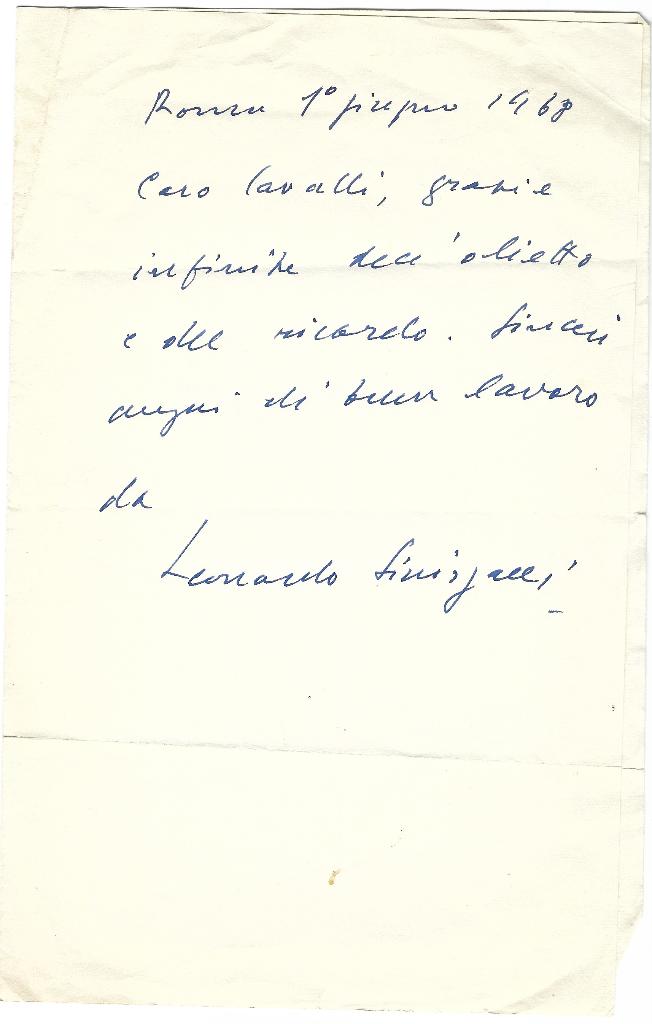 Roma 1° giugno 1968
Caro Cavalli, grazie
infinite dell'olietto
e del ricordo. Sinceri
auguri di buon lavoro
da
Leonardo Sinisgalli